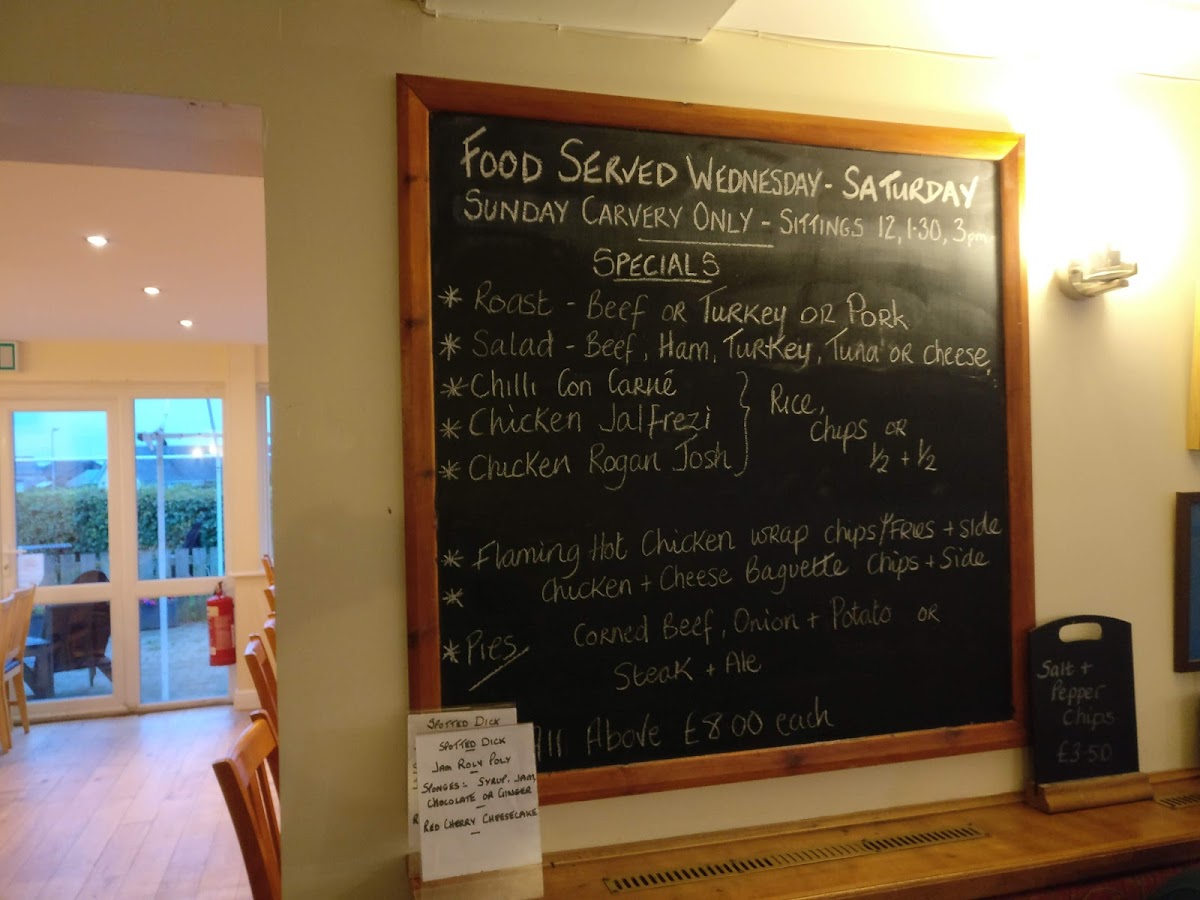 FOOD SERVED WEDNESDAY - SATURDAY
SUNDAY CARVERY ONLY - SITTINGS 12, 1.30, 3pm
SPECIALS
* Roast - Beef or Turkey or Pork
* Salad - Beef, Ham, Turkey, Tuna or cheese.
* Chilli Con Carné
* Chicken Jalfrezi
* Chicken Rogan Josh
Rice,
chips or
1/2 + 1/2
* Flaming Hot Chicken wrap chips/Fries + side
* Chicken + Cheese Baguette chips + Side
* Pies Corned Beef, Onion + Potato or
Steak + Ale
All Above £8.00 each
SPOTTED DICK
SPOTTED DICK
JAM ROLY POLY
SPONGES:- SYRUP, JAM,
CHOCOLATE OR GINGER
RED CHERRY CHEESECAKE
Salt +
Pepper
Chips
£3.50